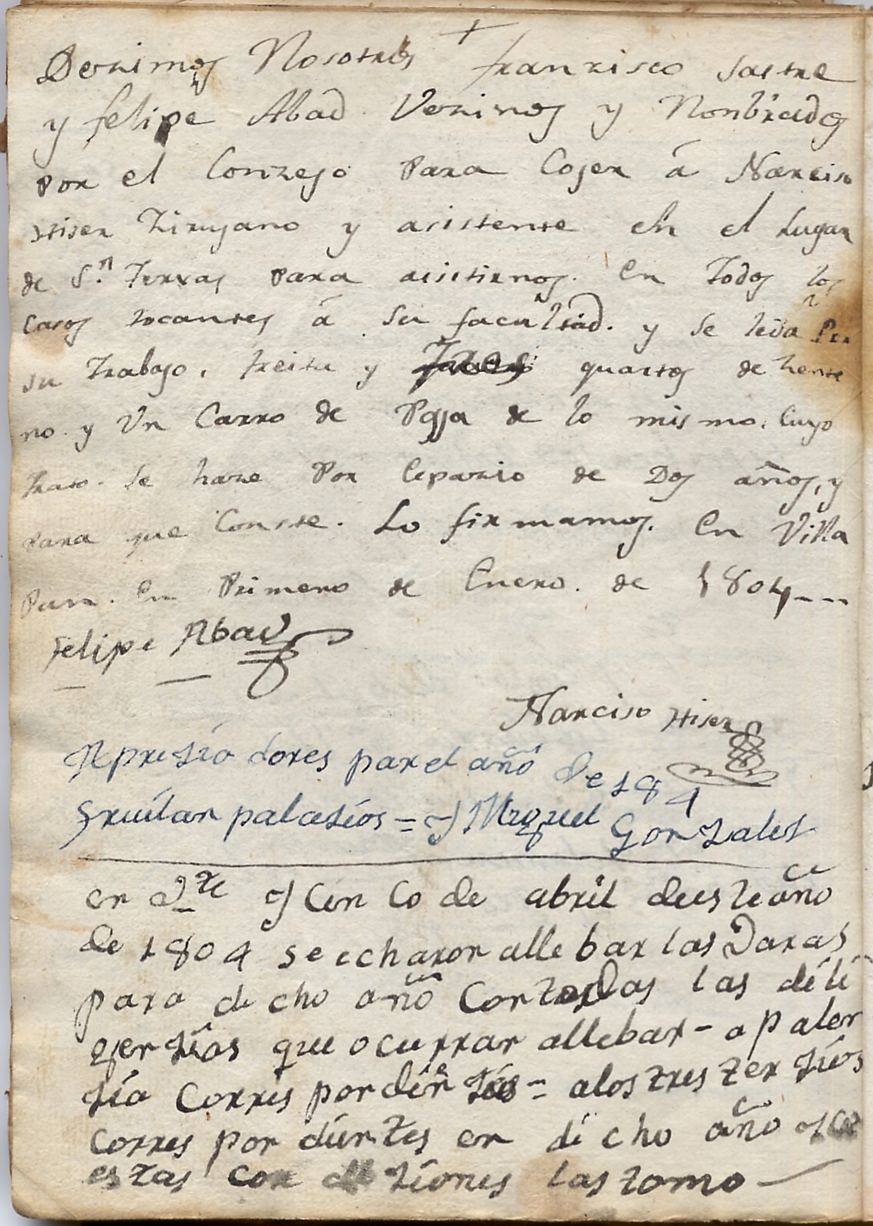 +
Dezimos Nosotros franzisco sastre
y felipe Abad Vezinos y Nonbrados
por el Conzejo para Cojer á Narciso
Stiser Zirujano y asistente en el Lugar
de S.n Zervas para asistirnos. En Todos los
casos tocantes á su facultad. y se le da Por
su Trabajo. treita y quartos de zente
no y Un Carro de Paja de lo mismo. Cuyo
trato. se haze Por Espazio de Dos años, y
Para que Conste. Lo firmamos. En Villa
Pun. En Primero de Enero. de 1804---
Felipe Abad
Narciso Stiser
Repartidores par el año de 1804
palasios = y Miguel Gonzales
en 25 y Cinco de abril de este año
de 1804 se echaron alle bar las Daxas
para di cho año Con todas las dili
genzias que ocurran allebar - a palen
zia Corres pondien = a los tres terzios
corres pondientes en di cho año
estas con diziones las tomo —